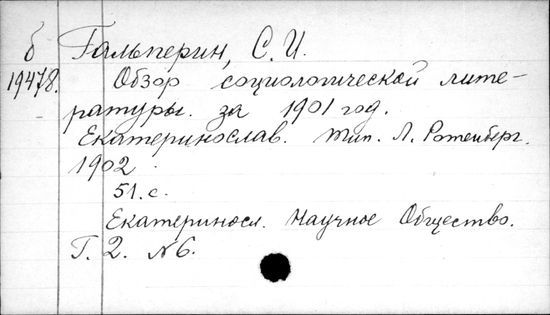 б Гальперин, С. И.
19478. Обзор социологической лите-
ратуры за 1901 год.
Екатеринослав. Тип. Л. Ротенберг.
1902
51. с.
Екатериносл. Научное Общество.
Г. 2. №6.